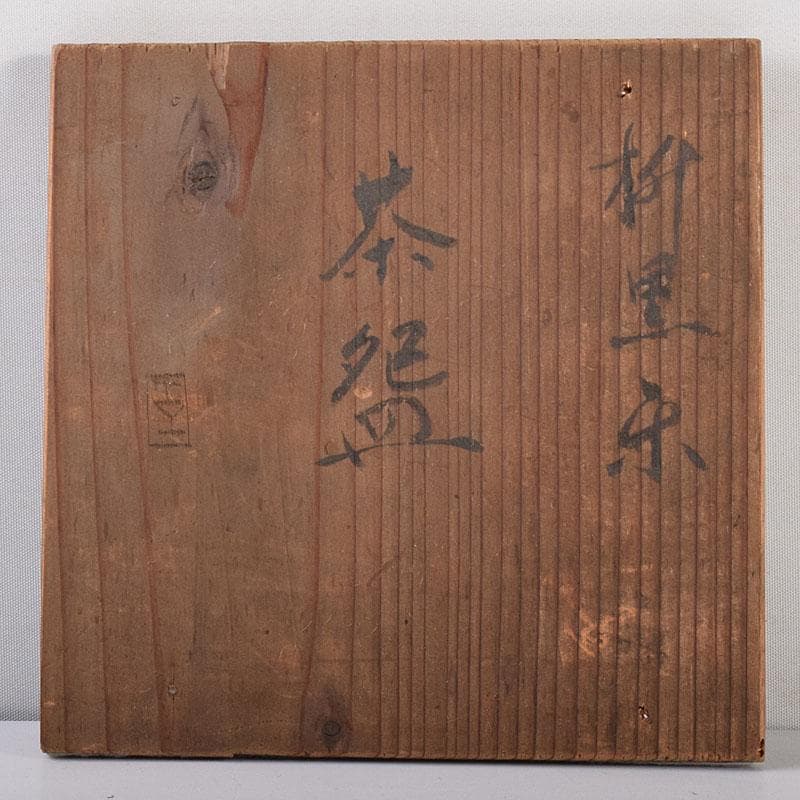 枡黒楽
茶盌